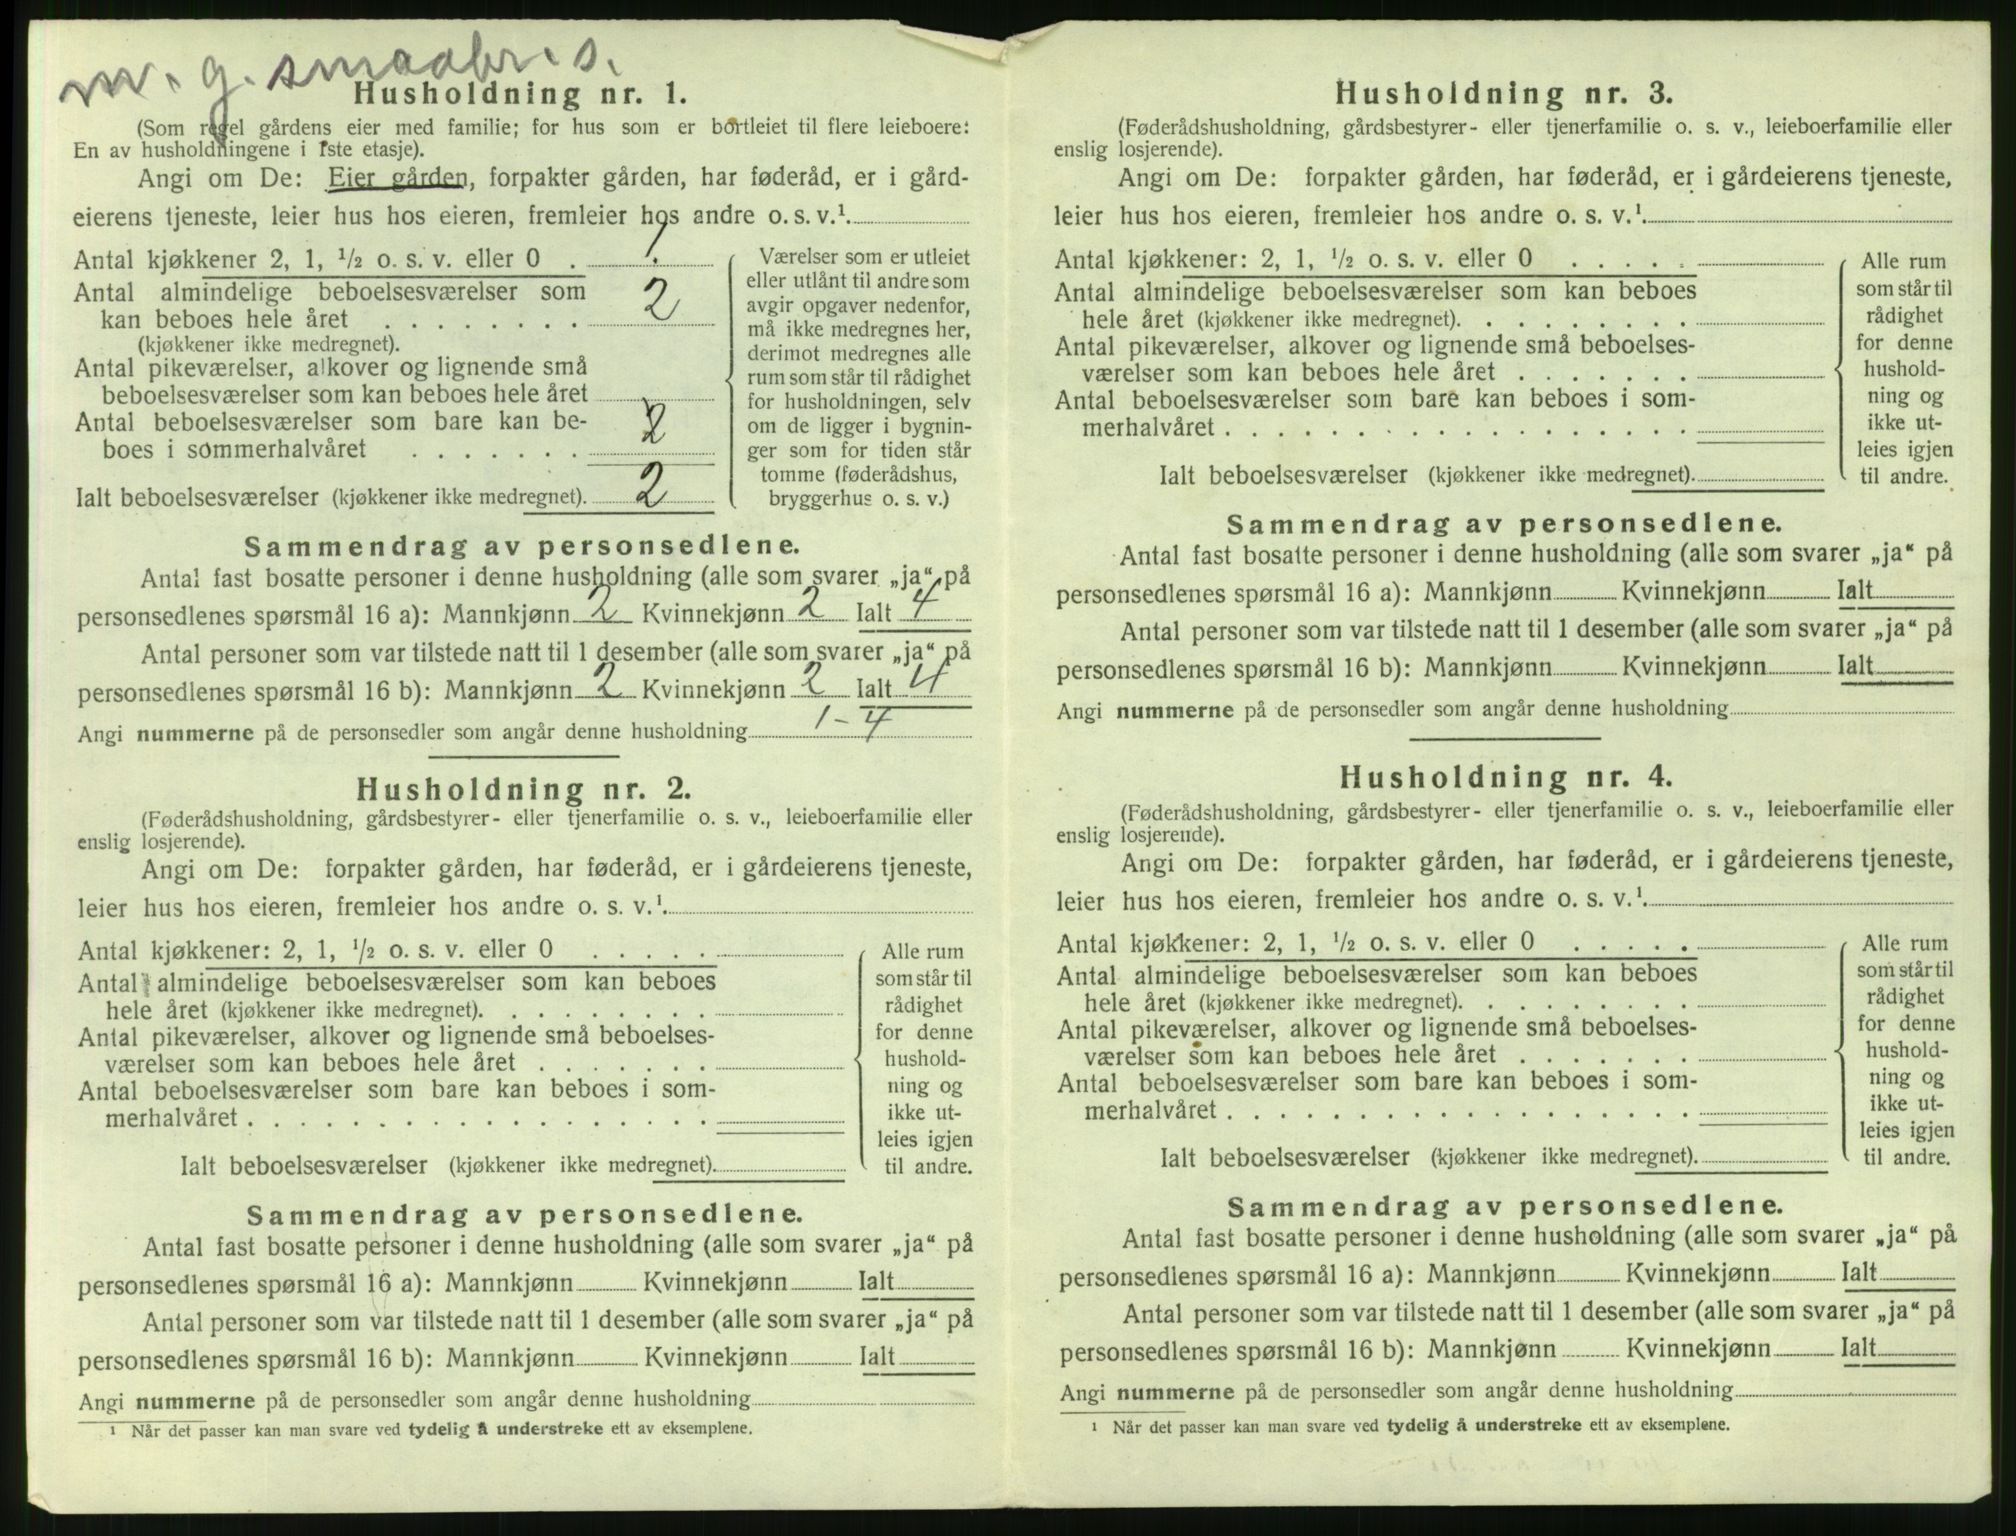 m. g. smaabr. s.
Husholdning nr. 1.
(Som regel gårdens eier med familie; for hus som er bortleiet til flere leieboere:
En av husholdningene i 1ste etasje).
Angi om De: Eier gården, forpakter gården, har føderåd, er i gård-
eierens tjeneste, leier hus hos eieren, fremleier hos andre o. s. v.¹
Antal kjøkkener 2, 1, ½ o. s. v. eller 0 . 1
Antal almindelige beboelsesværelser som
kan beboes hele året . . . . . . . . 2
(kjøkkener ikke medregnet).
Antal pikeværelser, alkover og lignende små
beboelsesværelser som kan beboes hele året
Antal beboelsesværelser som bare kan be-
boes i sommerhalvåret . . . . . . . 2
Ialt beboelsesværelser (kjøkkener ikke medregnet). 2
Værelser som er utleiet
eller utlånt til andre som
avgir opgaver nedenfor,
må ikke medregnes her,
derimot medregnes alle
rum som står til rådighet
for husholdningen, selv
om de ligger i bygnin-
ger som for tiden står
tomme (føderådshus,
bryggerhus o. s. v.)
Sammendrag av personsedlene.
Antal fast bosatte personer i denne husholdning (alle som svarer „ja“ på
personsedlenes spørsmål 16 a): Mannkjønn 2 Kvinnekjønn 2 Ialt 4
Antal personer som var tilstede natt til 1 desember (alle som svarer „ja“ på
personsedlenes spørsmål 16 b): Mannkjønn 2 Kvinnekjønn 2 Ialt 4
Angi nummerne på de personsedler som angår denne husholdning 1 - 4
Husholdning nr. 2.
(Føderådshusholdning, gårdsbestyrer- eller tjenerfamilie o. s. v., leieboerfamilie eller
enslig losjerende).
Angi om De: forpakter gården, har føderåd, er i gårdeierens tjeneste,
leier hus hos eieren, fremleier hos andre o. s. v.¹
Antal kjøkkener: 2, 1, ½ o. s. v. eller 0 . . . . .
Antal almindelige beboelsesværelser som kan beboes
hele året (kjøkkener ikke medregnet). . . . . . . . .
Antal pikeværelser, alkover og lignende små beboelses-
værelser som kan beboes hele året . . . . . . .
Antal beboelsesværelser som bare kan beboes i som-
merhalvåret . . . . . . . . . . . . . . . . . .
Ialt beboelsesværelser (kjøkkener ikke medregnet).
Alle rum
som står til
rådighet
for denne
hushold-
ning og
ikke ut-
leies igjen
til andre.
Sammendrag av personsedlene.
Antal fast bosatte personer i denne husholdning (alle som svarer „ja“ på
personsedlenes spørsmål 16 a): Mannkjønn Kvinnekjønn Ialt
Antal personer som var tilstede natt til 1 desember (alle som svarer „ja“ på
personsedlenes spørsmål 16 b): Mannkjønn Kvinnekjønn Ialt
Angi nummerne på de personsedler som angår denne husholdning
¹ Når det passer kan man svare ved tydelig å understreke ett av eksemplene.
Husholdning nr. 3.
(Føderådshusholdning, gårdsbestyrer- eller tjenerfamilie o. s. v., leieboerfamilie eller
enslig losjerende).
Angi om De: forpakter gården, har føderåd, er i gårdeierens tjeneste,
leier hus hos eieren, fremleier hos andre o. s. v.¹
Antal kjøkkener: 2, 1, ½ o. s. v. eller 0 . . . . .
Antal almindelige beboelsesværelser som kan beboes
hele året (kjøkkener ikke medregnet). . . . . . . . .
Antal pikeværelser, alkover og lignende små beboelses-
værelser som kan beboes hele året . . . . . . .
Antal beboelsesværelser som bare kan beboes i som-
merhalvåret . . . . . . . . . . . . . . . . . .
Ialt beboelsesværelser (kjøkkener ikke medregnet).
Alle rum
som står til
rådighet
for denne
hushold-
ning og
ikke ut-
leies igjen
til andre.
Sammendrag av personsedlene.
Antal fast bosatte personer i denne husholdning (alle som svarer „ja“ på
personsedlenes spørsmål 16 a): Mannkjønn Kvinnekjønn Ialt
Antal personer som var tilstede natt til 1 desember (alle som svarer „ja“ på
personsedlenes spørsmål 16 b): Mannkjønn Kvinnekjønn Ialt
Angi nummerne på de personsedler som angår denne husholdning
Husholdning nr. 4.
(Føderådshusholdning, gårdsbestyrer- eller tjenerfamilie o. s. v., leieboerfamilie eller
enslig losjerende).
Angi om De: forpakter gården, har føderåd, er i gårdeierens tjeneste,
leier hus hos eieren, fremleier hos andre o. s. v.¹
Antal kjøkkener: 2, 1, ½ o. s. v. eller 0 . . . . .
Antal almindelige beboelsesværelser som kan beboes
hele året (kjøkkener ikke medregnet). . . . . . . . .
Antal pikeværelser, alkover og lignende små beboelses-
værelser som kan beboes hele året . . . . . . .
Antal beboelsesværelser som bare kan beboes i som-
merhalvåret . . . . . . . . . . . . . . . . . .
Ialt beboelsesværelser (kjøkkener ikke medregnet).
Alle rum
som står til
rådighet
for denne
hushold-
ning og
ikke ut-
leies igjen
til andre.
Sammendrag av personsedlene.
Antal fast bosatte personer i denne husholdning (alle som svarer „ja“ på
personsedlenes spørsmål 16 a): Mannkjønn Kvinnekjønn Ialt
Antal personer som var tilstede natt til 1 desember (alle som svarer „ja“ på
personsedlenes spørsmål 16 b): Mannkjønn Kvinnekjønn Ialt
Angi nummerne på de personsedler som angår denne husholdning
¹ Når det passer kan man svare ved tydelig å understreke ett av eksemplene.